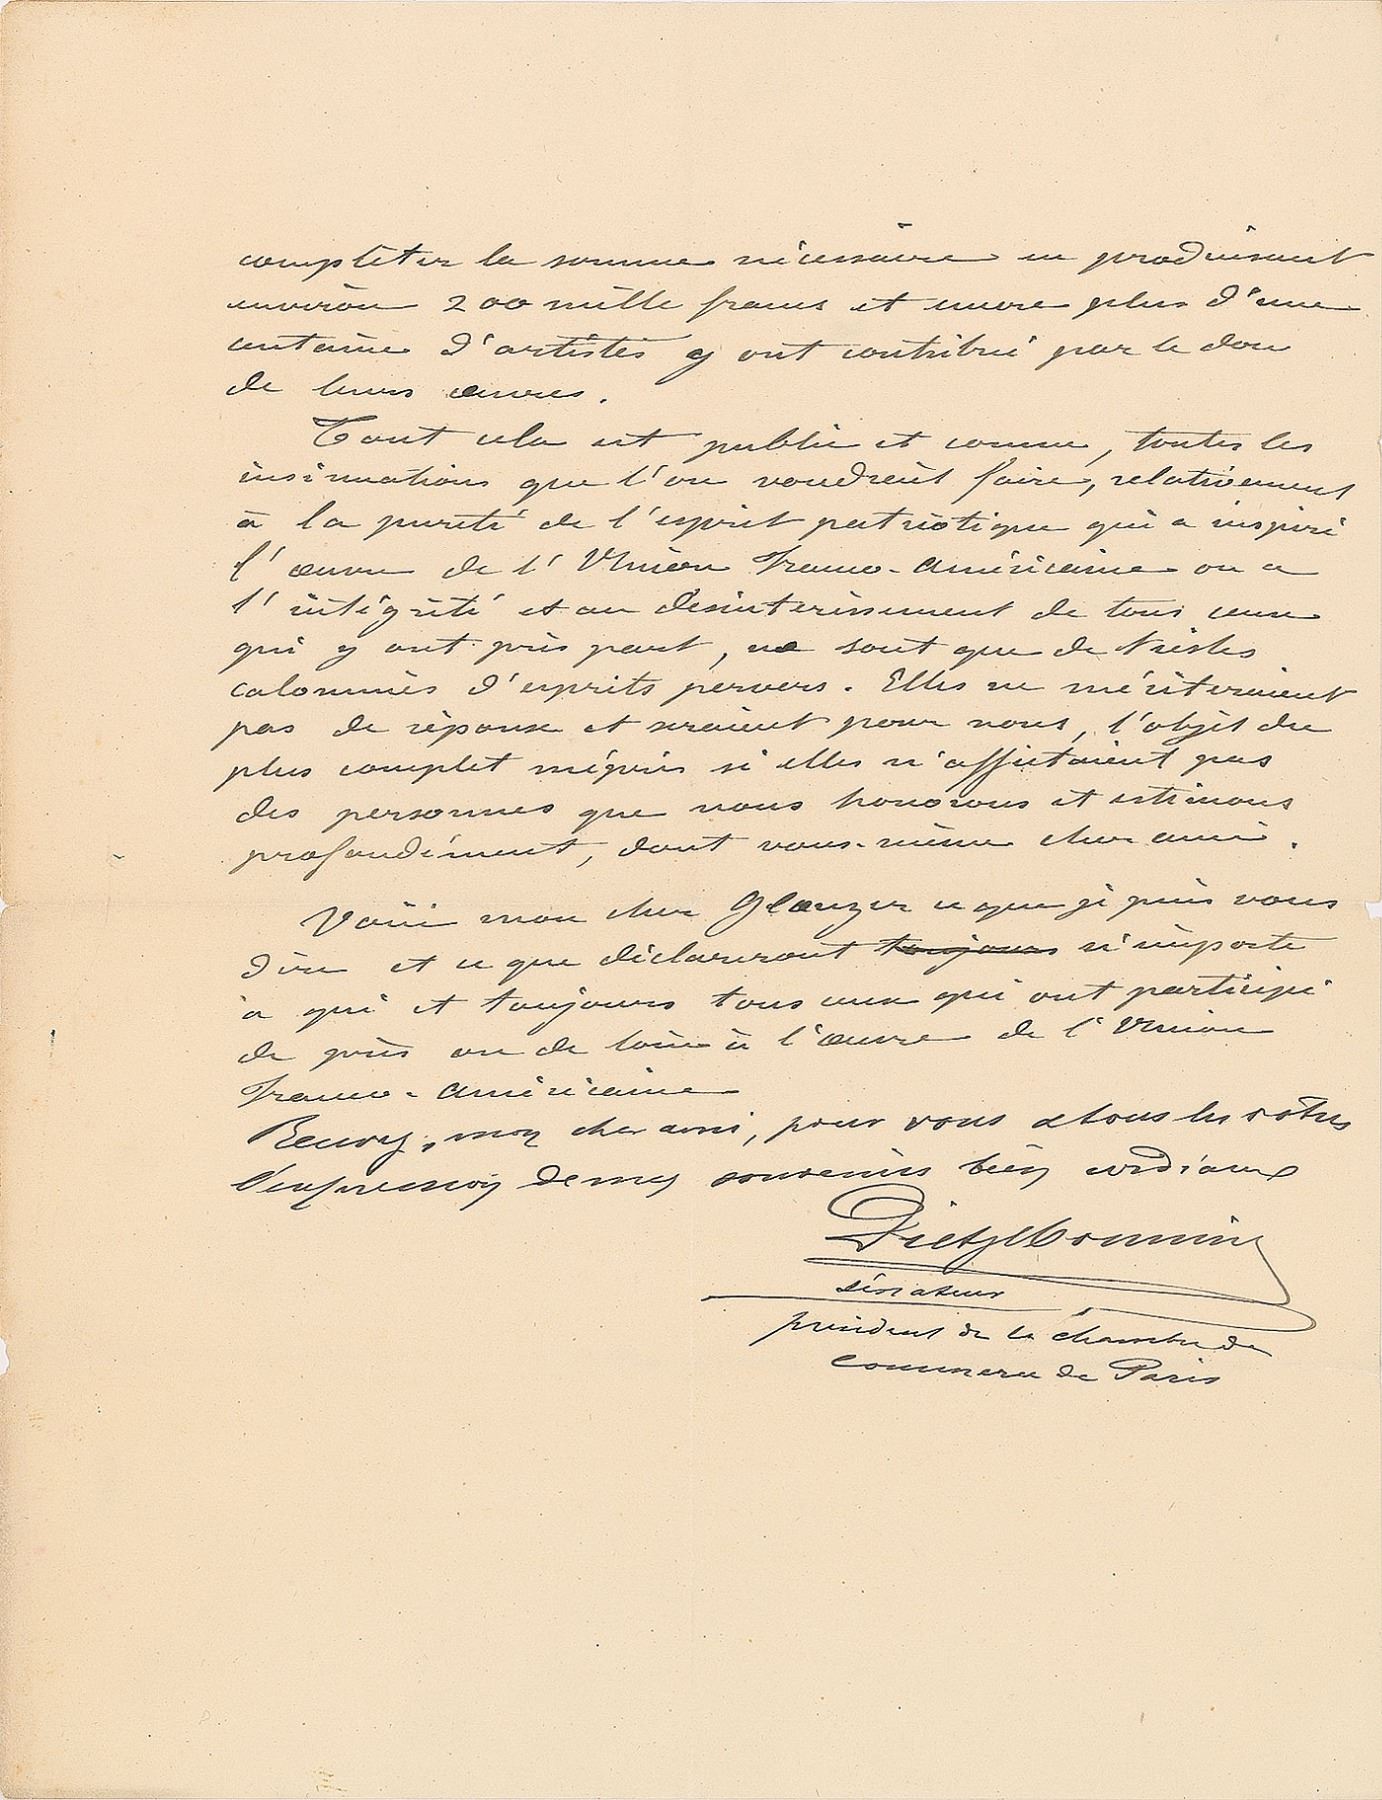 compléter la somme nécessaire en produisant
environ 200 mille francs et encore plus d'une
centaine d'artistes y ont contribué par le don
de leurs œuvres.
Tout cela est public et connu, toutes les
insinuations que l'on voudrait faire, relativement
à la pureté de l'esprit patriotique qui a inspiré
l'œuvre de l'Union Franco-Américaine ou a
l'intégrité et au désintéressement de tous ceux
qui y ont pris part, ne sont que de tristes
calomnies d'esprits pervers. Elles ne mériteraient
pas de réponse et seraient pour nous, l'objet du
plus complet mépris si elles n'affectaient pas
des personnes que nous honorons et estimons
profondément, dont vous-même cher ami.
Voici mon cher Glaenzer ce que je puis vous
dire et ce que déclareront toujours n'importe
à qui et toujours tous ceux qui ont participé
de près ou de loin à l'œuvre de l'Union
Franco-Américaine
Recevez, mon cher ami, pour vous et tous les vôtres
l'expression de mes souvenirs bien cordiaux
Dietz Monnin
sénateur
président de la chambre de
commerce de Paris